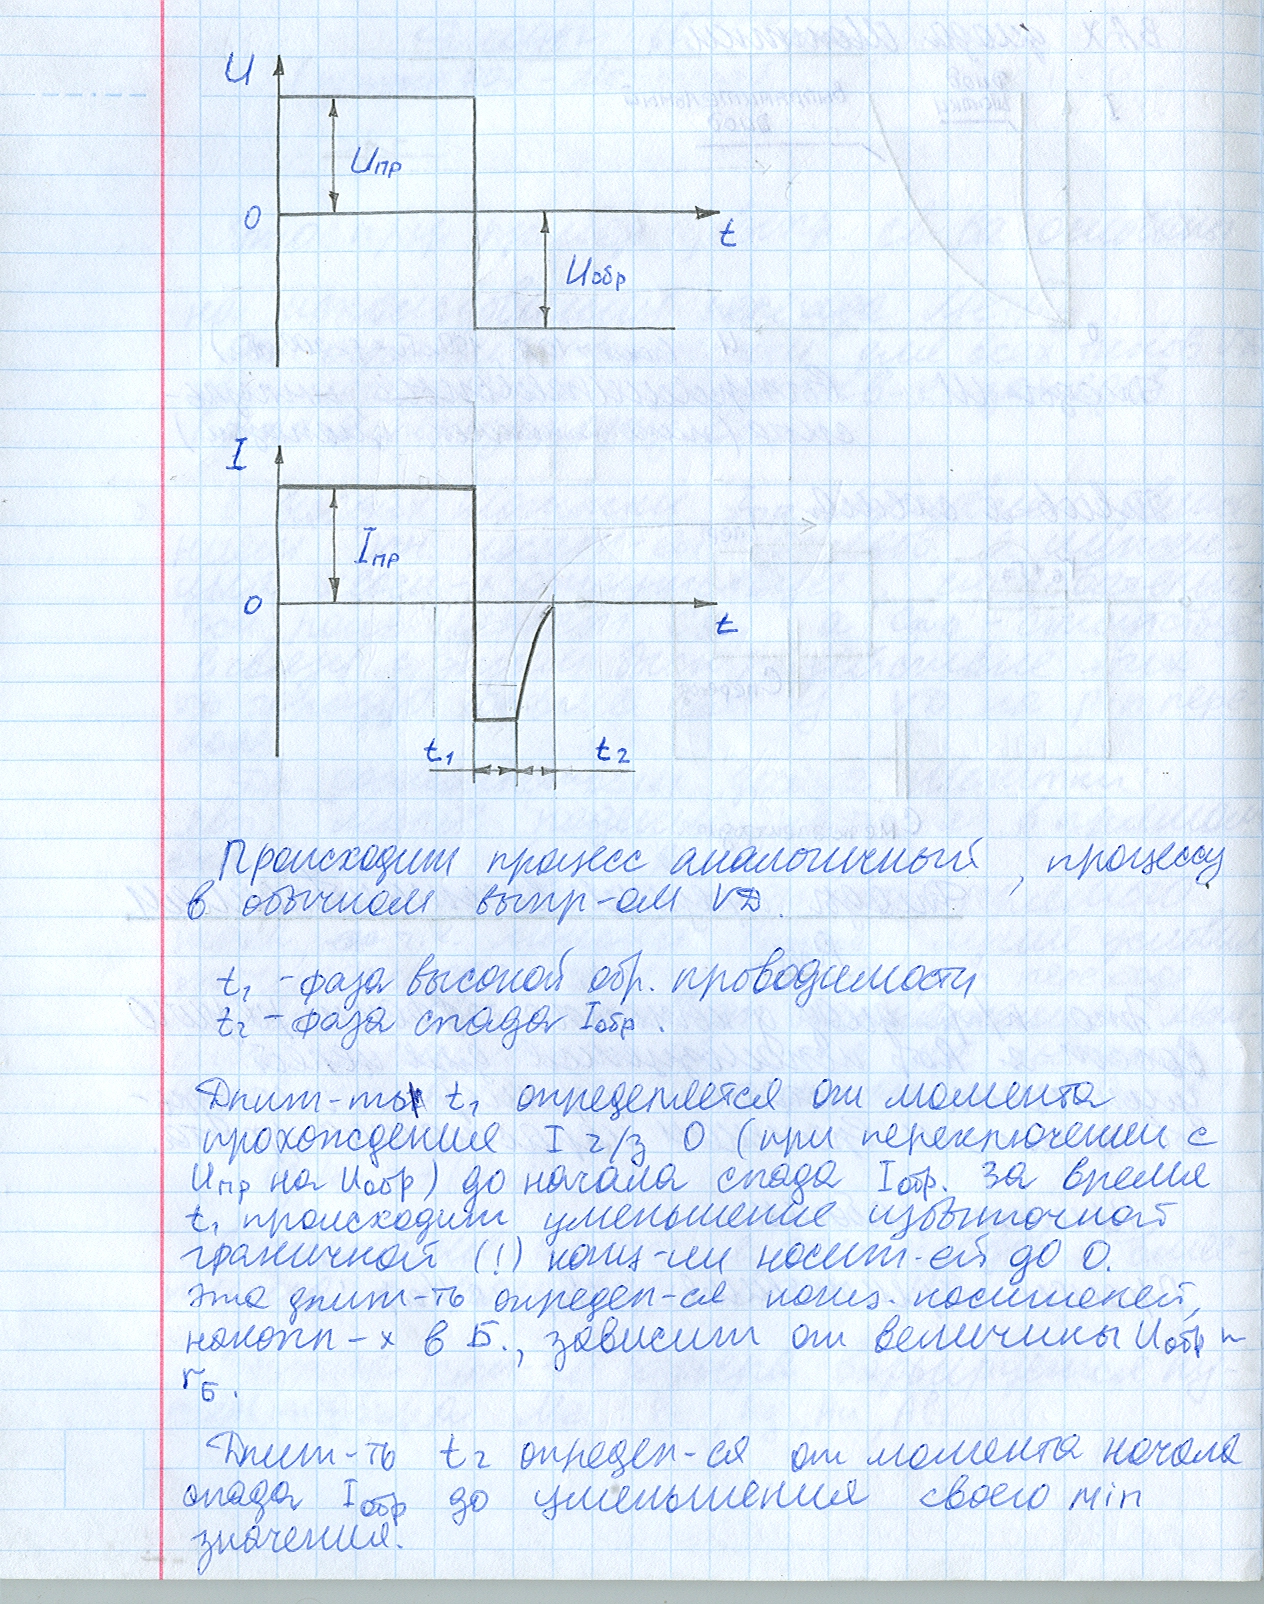 U
Uпр
0
t
Uобр
I
Iпр
0
t
t₁
t₂
Происходит процесс аналогичный, процессу
в обычном выпр-ом VD.
t₁ - фаза высокой обр. проводимости
t₂ - фаза спада Iобр.
Длит-ть t₁ определяется от момента
прохождения I ч/з 0 (при переключении с
Uпр на Uобр) до начала спада Iобр. За время
t₁ происходит уменьшение избыточной
граничной (!) конц-ии носит-ей до 0.
Эта длит-ть определ-ся конц. носителей,
накопл-х в Б., зависит от величины Uобр и
rБ.
Длит-ть t₂ определ-ся от момента начала
спада Iобр до уменьшения своего min
значения.